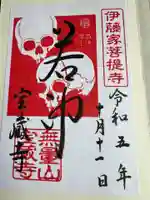 伊藤家菩提寺
令和五年
十月十一日
若冲
無量山
宝蔵寺
宝蔵寺